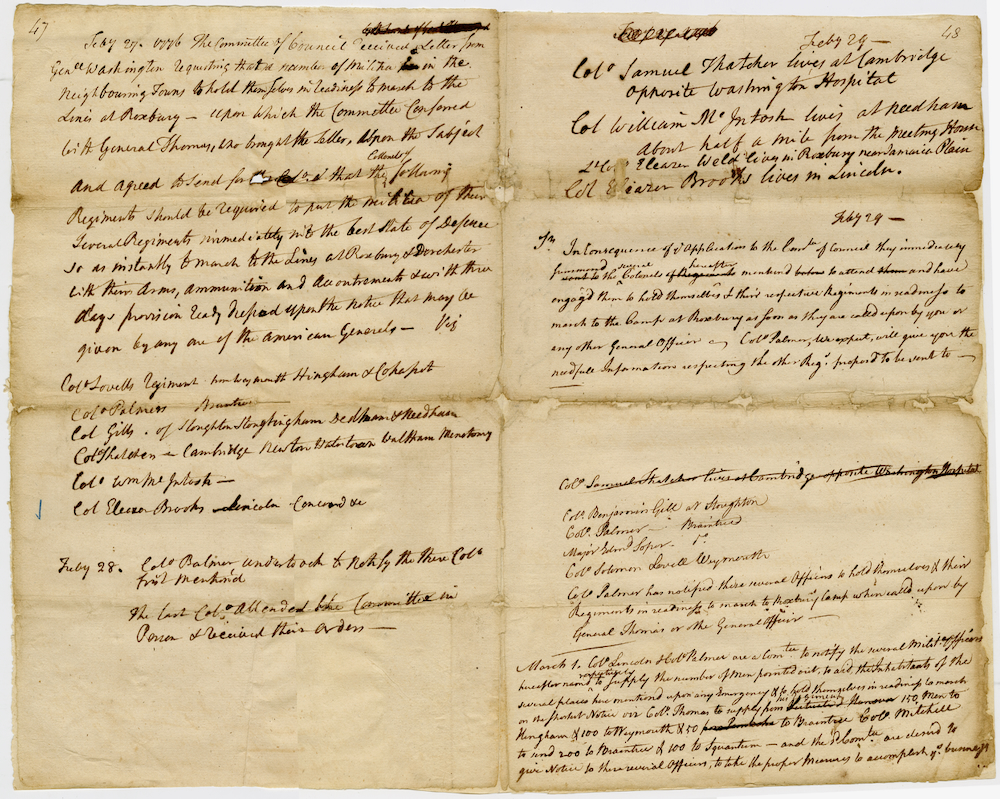 47
Feby 27. 1776 The Committee of Council received Letter from
Genel Washington requesting that a number of Militia in the
Neighbouring Towns to hold themselves in readiness to march to the
Lines at Roxbury — upon which the Committee Conferred
with General Thomas, who brought the Letter, upon the Subject
Colonels of
and agreed to send for that the following
Regiments should be required to put the militia of their
several Regiments immediately into the best State of Defence
so as instantly to march to the Lines at Roxbury & Dorchester
with their Arms, ammunition and Accoutrements & with three
days provision ready dressed upon the notice that may be
given by any one of the American Generals — Viz
Colo Lovells Regiment Weymouth Hingham & Cohasset
Colo Palmers Braintree
Col Gills . of Stoughton Stoughtingham Dedham & Needham
Colo Thatcher — Cambridge Newton Watertown Waltham Menotomy
Colo Wm McIntosh —
Col Eleazer Brooks — Lincoln Concord &c
Feby 28. Colo Palmer undertook to Notify the three Colo
first mentiond
The last Colo Attended the Committee in
Person & received their orders —
48
Feby 29 —
Colo Samuel Thatcher lives at Cambridge
opposite Washington Hospital
Col William McIntosh lives at Needham
about half a mile from the Meeting House
Lt Co Eleazer Weld lives in Roxbury near Jamaica Plain
Col Eleazer Brooks lives in Lincoln.
Feby 29 —
Sr
In Consequence of yr Application to the Comtee of Council they immediately
several hereafter
sent to the Colonels of Regiments mentiond to attend them and have
engag'd them to hold themselves & their respective Regiments in readiness to
march to the Camp at Roxbury as soon as they are called upon by you or
any other General Officer — Colo Palmer, we expect, will give you the
needfull Information respecting the other Regts propos'd to be sent to —
Colo Samuel Thatcher lives at Cambridge opposite Washington Hospital
Colo Benjamin Gill at Stoughton
Colo Palmer — Braintree
Major Edmd Soper Do
Colo Solomon Lovell Weymouth
Colo Palmer has notified these several Officers to hold themselves & their
Regiments in readiness to march to Roxbury Camp when called upon by
General Thomas or other General Officer —
March 1. Colo Lincoln & Colo Palmer are a Comtee to notify the several Milita Officers
respectively
hereafter namd to supply the number of Men pointed out, to aid the Inhabitants of the
several places here mentiond upon any Emergency & to hold themselves in readiness to march
his Regiment
on the shortest Notice viz Colo Thomas to supply from Hanover 150 Men to
Hingham & 100 to Weymouth & 50 to Braintree Colo Mitchell
to send 200 to Braintree & 100 to Squantum — and the sd Comtee are desird to
give Notice to these several Officers, to take the proper Measures to accomplish ye business